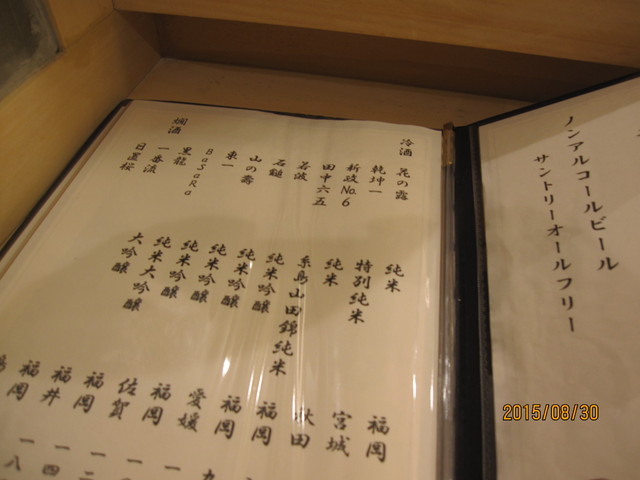 ノンアルコールビール
サントリーオールフリー
冷酒 花の露 純米 福岡
乾坤一 特別純米 宮城
新政No.6 純米 秋田
田中六五 糸島山田錦純米 福岡
若波 純米吟醸 福岡
石鎚 純米吟醸 愛媛
山の壽 純米吟醸 福岡
東一 純米吟醸 佐賀
BaSaRa 純米大吟醸 福岡
黒龍 大吟醸 福井
一番流 福岡
燗酒 日置桜
2015/08/30